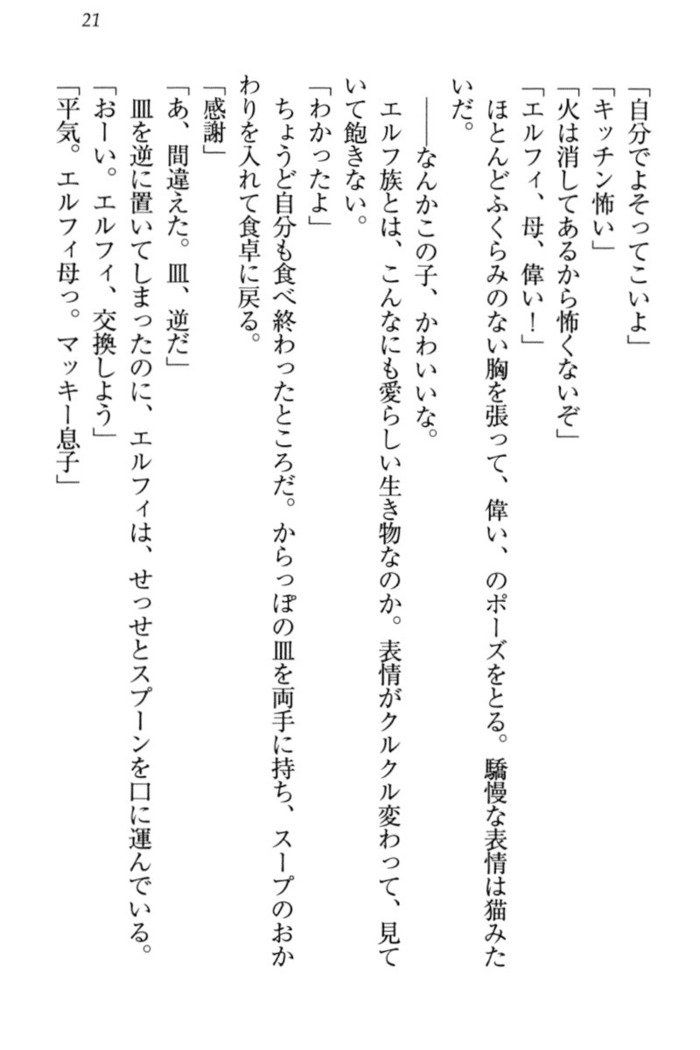 21
「自分でよそってこいよ」
「キッチン怖い」
「火は消してあるから怖くないぞ」
「エルフィ、母、偉い！」
ほとんどふくらみのない胸を張って、偉い、のポーズをとる。驕慢な表情は猫みた
いだ。
――なんかこの子、かわいいな。
エルフ族とは、こんなにも愛らしい生き物なのか。表情がクルクル変わって、見て
いて飽きない。
「わかったよ」
ちょうど自分も食べ終わったところだ。からっぽの皿を両手に持ち、スープのおか
わりを入れて食卓に戻る。
「感謝」
「あ、間違えた。皿、逆だ」
皿を逆に置いてしまったのに、エルフィは、せっせとスプーンを口に運んでいる。
「おーい。エルフィ、交換しよう」
「平気。エルフィ母っ。マッキー息子」